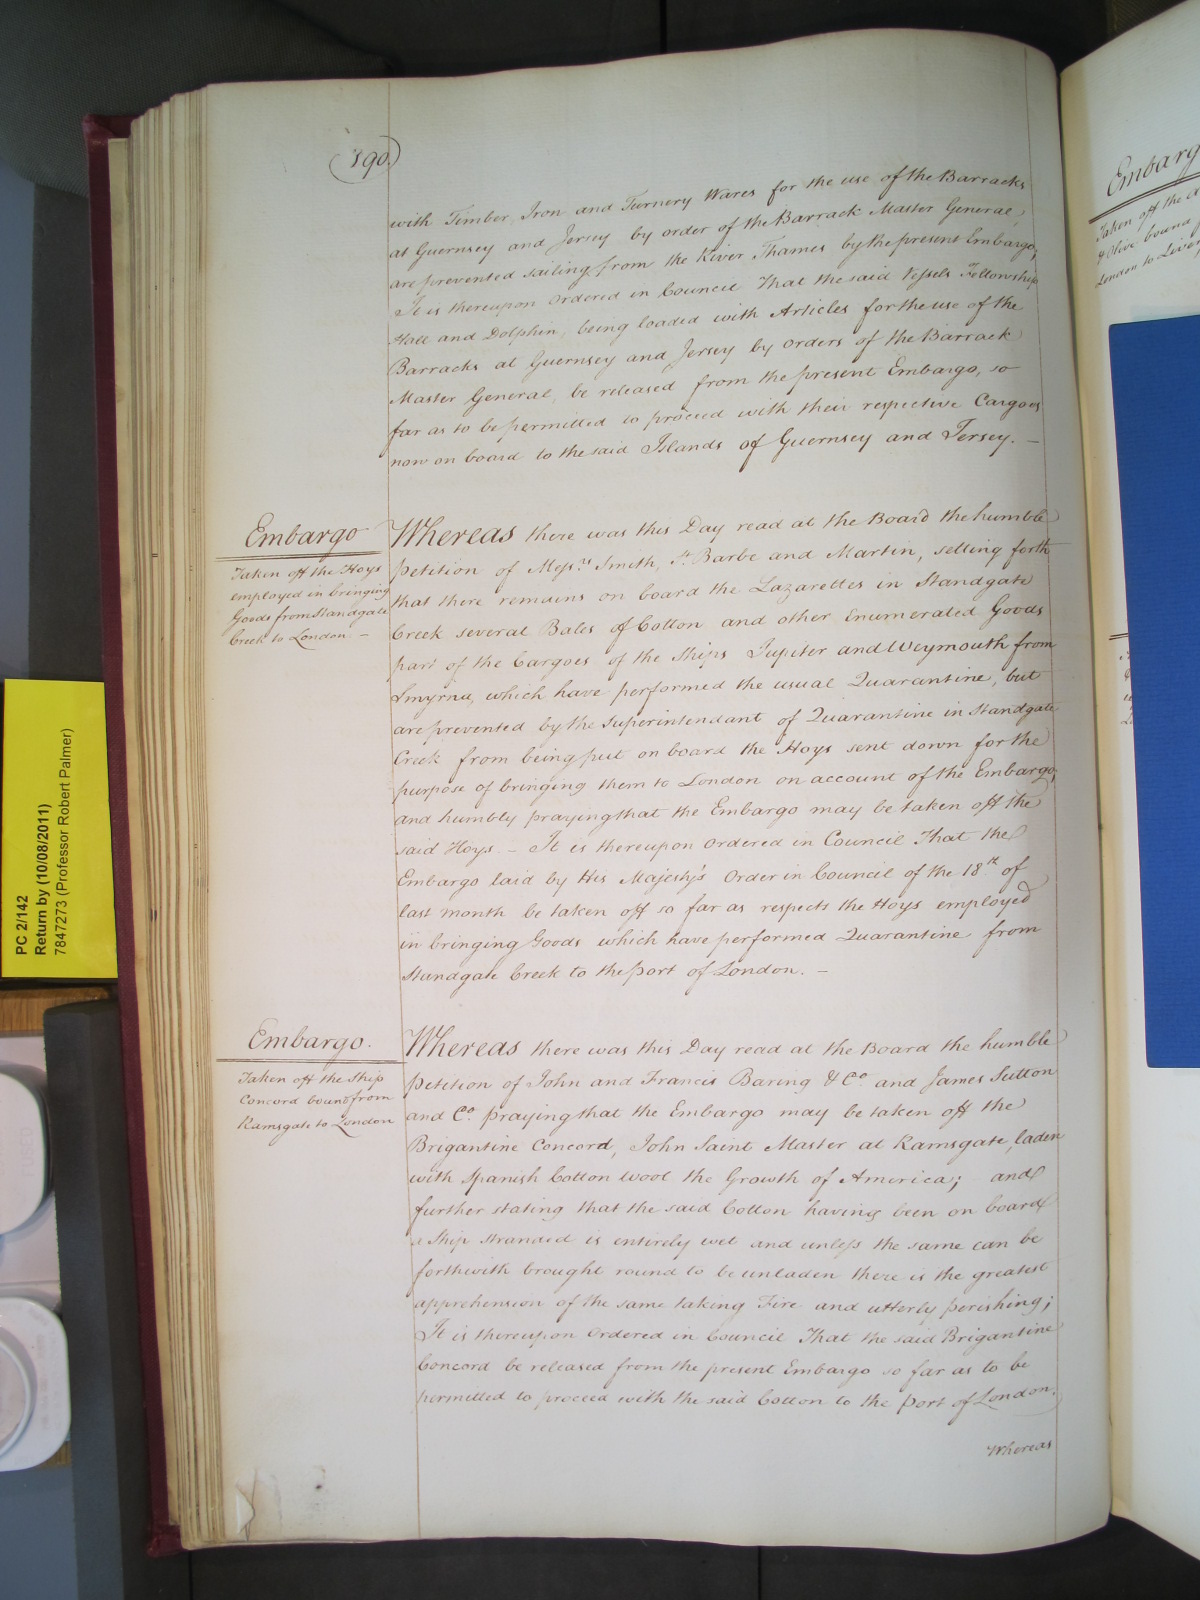 (190.)
with Timber, Iron and Turnery Wares for the use of the Barracks
at Guernsey and Jersey by order of the Barrack Master General,
are prevented sailing from the River Thames by the present Embargo,
It is thereupon Ordered in Council That the said Vessels Fellowship
Hall and Dolphin, being loaded with Articles for the use of the
Barracks at Guernsey and Jersey by orders of the Barrack
Master General, be released from the present Embargo, so
far as to be permitted to proceed with their respective Cargoes
now on board to the said Islands of Guernsey and Jersey. —
Embargo
Taken off the Hoys
employed in bringing
Goods from Standgate
Creek to London —
Whereas there was this Day read at the Board the humble
petition of Messrs Smith, St Barbe and Martin, setting forth
that there remains on board the Lazarettes in Standgate
Creek several Bales of Cotton and other Enumerated Goods
part of the Cargoes of the Ships Jupiter and Weymouth from
Smyrna, which have performed the usual Quarantine, but
are prevented by the Superintendant of Quarantine in Standgate
Creek from being put on board the Hoys sent down for the
purpose of bringing them to London on account of the Embargo,
and humbly praying that the Embargo may be taken off the
said Hoys. — It is thereupon Ordered in Council That the
Embargo laid by His Majesty's Order in Council of the 18th of
last month be taken off so far as respects the Hoys employed
in bringing Goods which have performed Quarantine from
Standgate Creek to the port of London. —
Embargo.
Taken off the Ship
Concord bound from
Ramsgate to London
Whereas there was this Day read at the Board the humble
Petition of John and Francis Baring & Co and James Sutton
and Co. praying that the Embargo may be taken off the
Brigantine Concord, John Saint Master at Ramsgate, laden
with Spanish Cotton Wool the Growth of America; and
further stating that the said Cotton having been on board
a Ship stranded is entirely wet and unless the same can be
forthwith brought round to be unladen there is the greatest
apprehension of the same taking Fire and utterly perishing;
It is thereupon Ordered in Council That the said Brigantine
Concord be released from the present Embargo so far as to be
permitted to proceed with the said Cotton to the Port of London.
Whereas
PC 2/142
Return by (10/08/2011)
7847273 (Professor Robert Palmer)
Embarg
Taken off the
& Olive bound
London to Liver